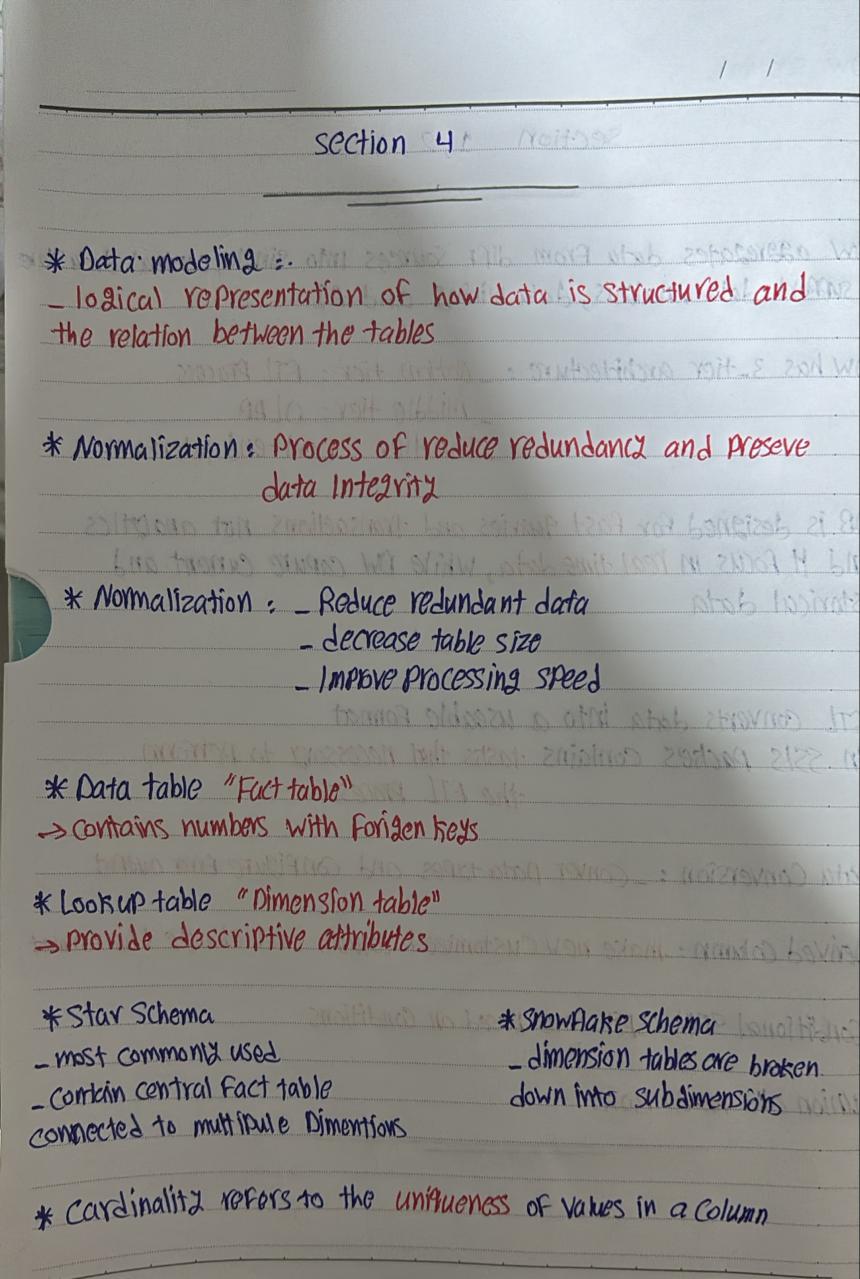 / /
Section 4
* Data modeling :.
- logical representation of how data is structured and
the relation between the tables
* Normalization : Process of reduce redundancy and preseve
data Integrity
* Normalization : - Reduce redundant data
- decrease table size
- Improve processing speed
* Data table "Fact table"
→ contains numbers with Forigen keys
* Lookup table "Dimension table"
→ provide descriptive attributes
* Star Schema
- most commonly used
- contain central fact table
connected to multipule Dimentions
* Snowflake schema
- dimension tables are broken
down into subdimensions
* Cardinality refers to the uniqueness of values in a column